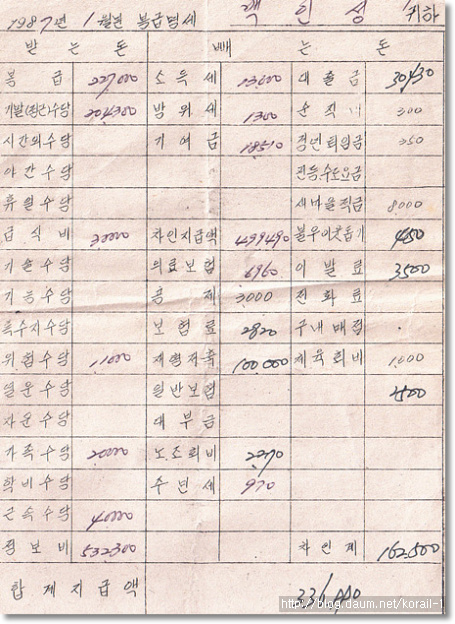 1987년 1월분 봉급명세 귀하
받는돈 빼는돈
봉급 227000 소득세 13600 대출금 30430
기말(정근)수당 204300 방위세 1300 순직 300
시간외수당 기여금 18510 정년퇴임금 350
야간수당 전등.수도요금
휴일수당 새마을적금 8000
급식비 차인지급액 499490 불우이웃돕기 450
기술수당 의료보험 6960 이발료 3500
기능수당 공제 3000 전화료
특수지수당 보험료 2820 구내매점
위험수당 11000 재형저축 100,000 체육회비 1,000
열운수당 일반보험 2500
차운수당 대부금
가족수당 노조회비 2270
학비수당 수면세 970
근속수당 40000
정보비 532,300 차인계 162,500
합계지급액 336,990
http://blog.daum.net/korail-